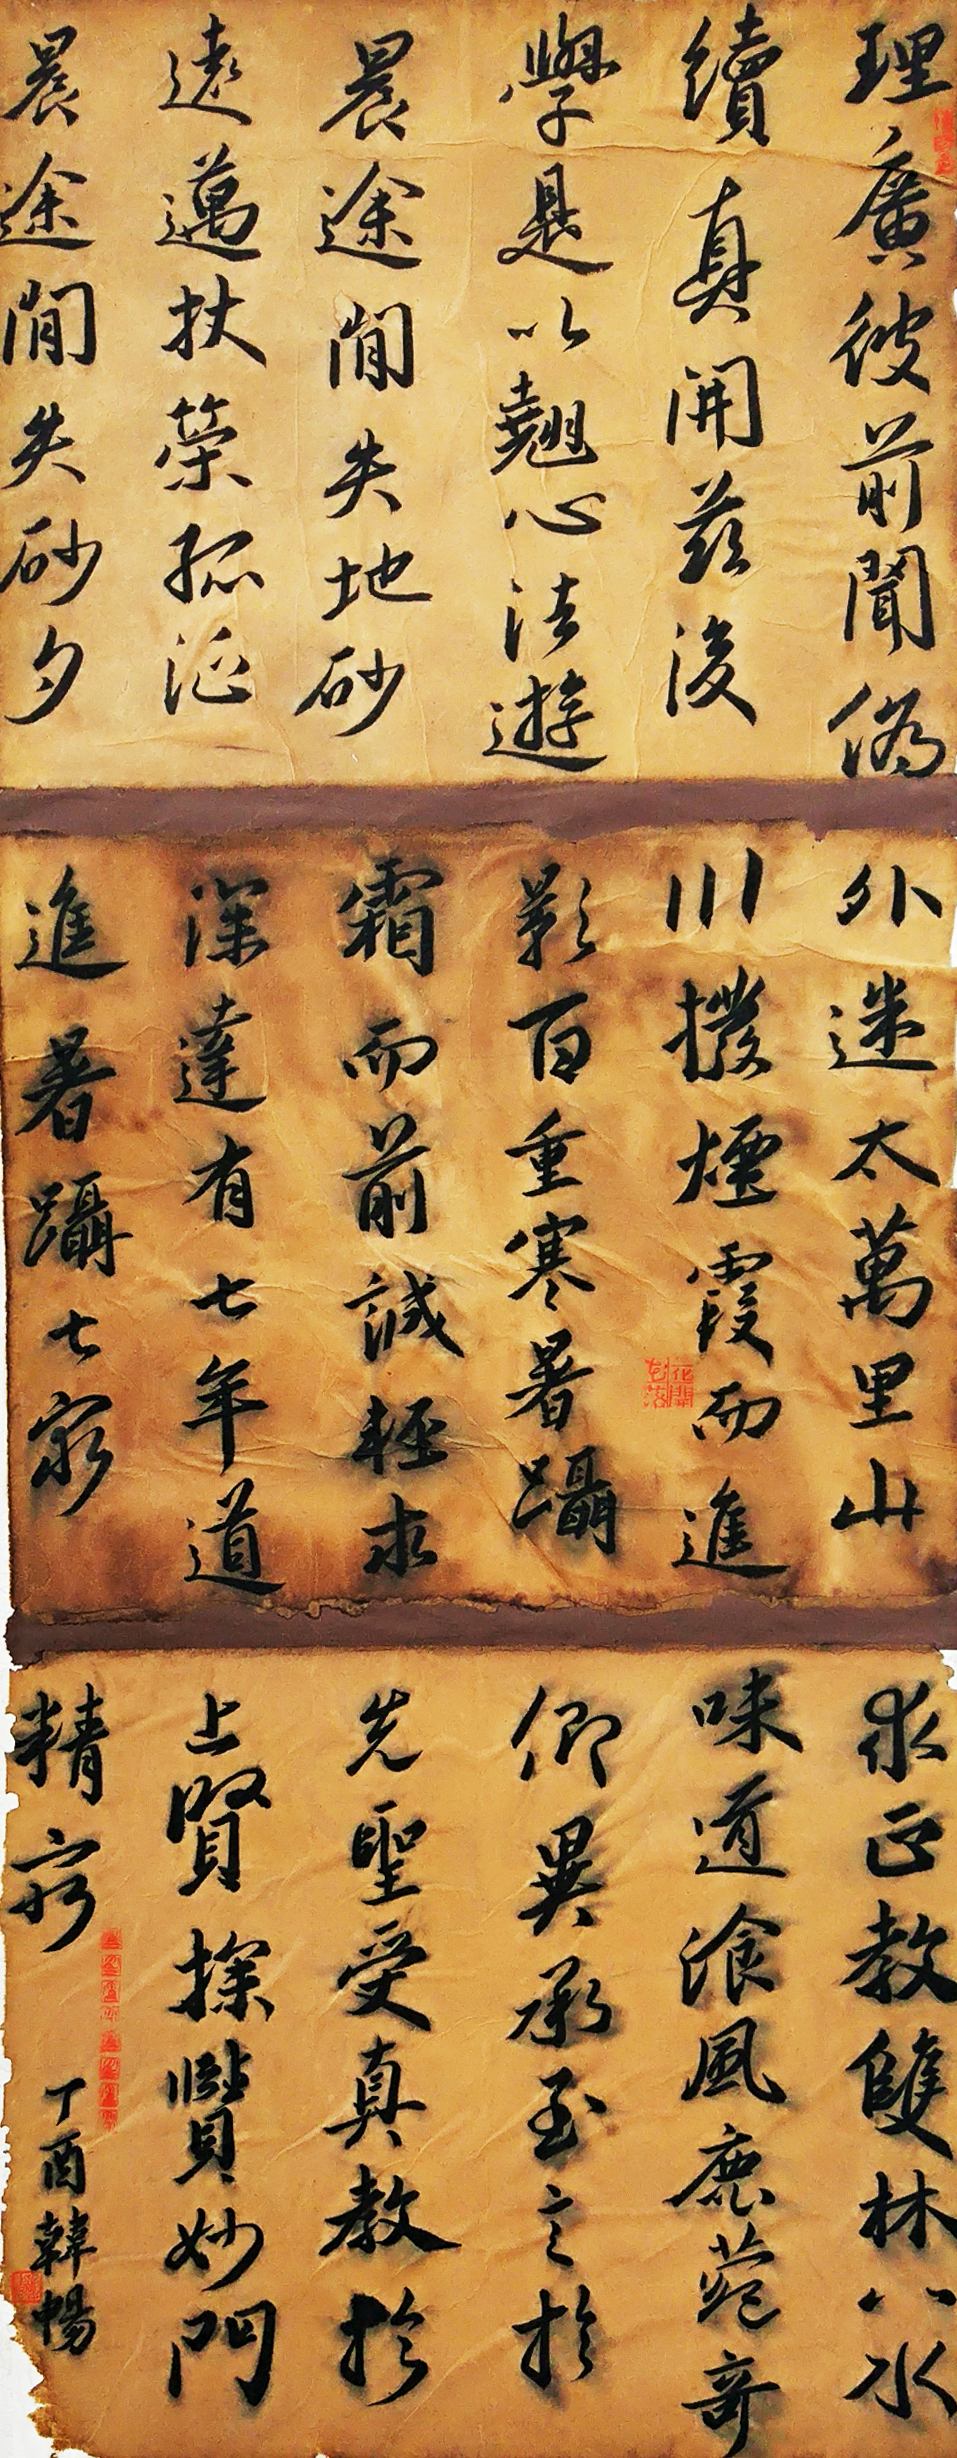 理廣彼前聞偽
續真開茲後
學是以翹心法遊
晨途間失地砂
遠邁杖策孤征
晨途間失砂夕
外迷太萬里山
川撥煙霞而進
影百重寒暑躡
霜而前誠輕求
深達有七年道
進暑躡七窮
求正教雙林八水
味道飡風鹿菀奇
仰異承至言於
先聖受真教於
上賢探賾妙門
精窮
丁酉韓暢